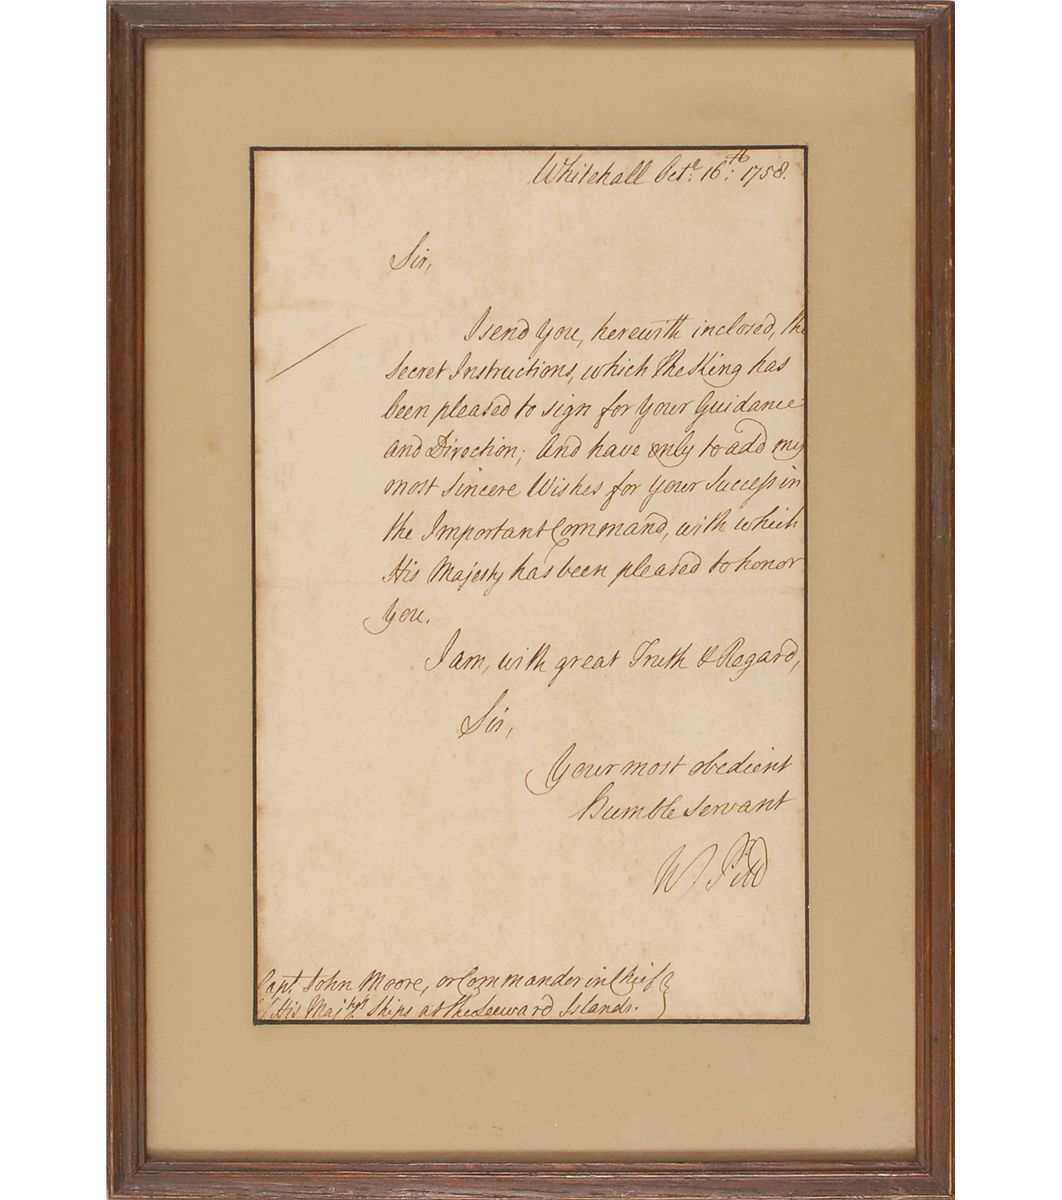 Whitehall Octr. 16th: 1758.
Sir,
I send You, herewith inclosed, the
Secret Instructions, which The King has
been pleased to sign for Your Guidance
and Direction; And have only to add my
most sincere Wishes for your Success in
the Important Command, with which
His Majesty has been pleased to honor
You.
I am, with great Truth & Regard,
Sir,
Your most obedient
humble Servant
W Pitt
Capt. John Moore, or Commander in Chief
of His Majty's Ships at the Leeward Islands.